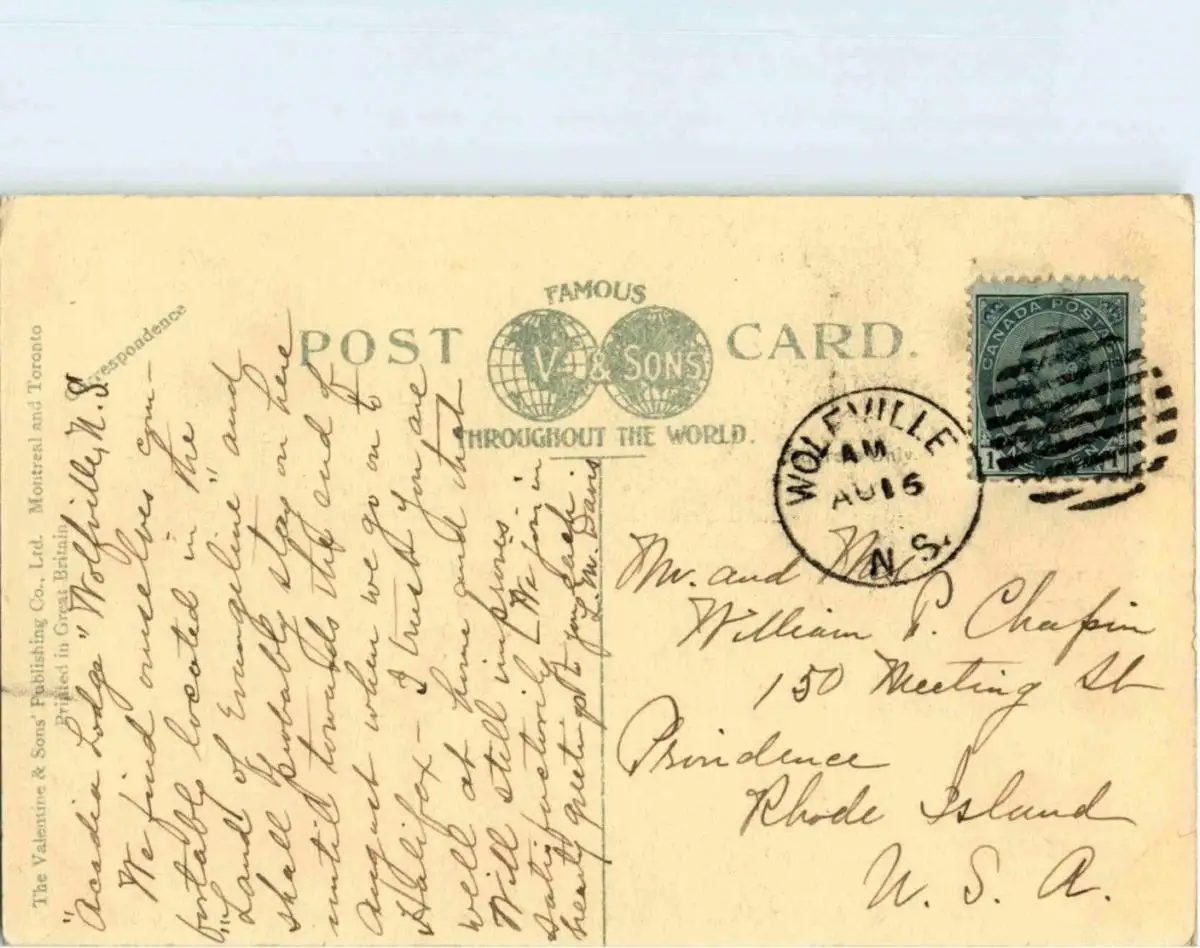 FAMOUS
POST CARD.
V. & SONS
THROUGHOUT THE WORLD.
The Valentine & Sons' Publishing Co., Ltd. Montreal and Toronto
Printed in Great Britain
respondence
"Acadia Lodge" Wolfville, N.S.
We find ourselves com-
fortably located in "the
"Land of Evangeline" and
shall probably stay on here
until towards the end of
August when we go on to
Halifax - I trust you are
well at home and that
Will still improves
satisfactorily. We join in
hearty greetings to you each.
L. M. Davis
CANADA POSTAGE
1 1
WOLFVILLE
AM
AU 16
N S.
Only.
Mr. and Mrs
William P. Chapin
150 Meeting St
Providence
Rhode Island
U. S. A.